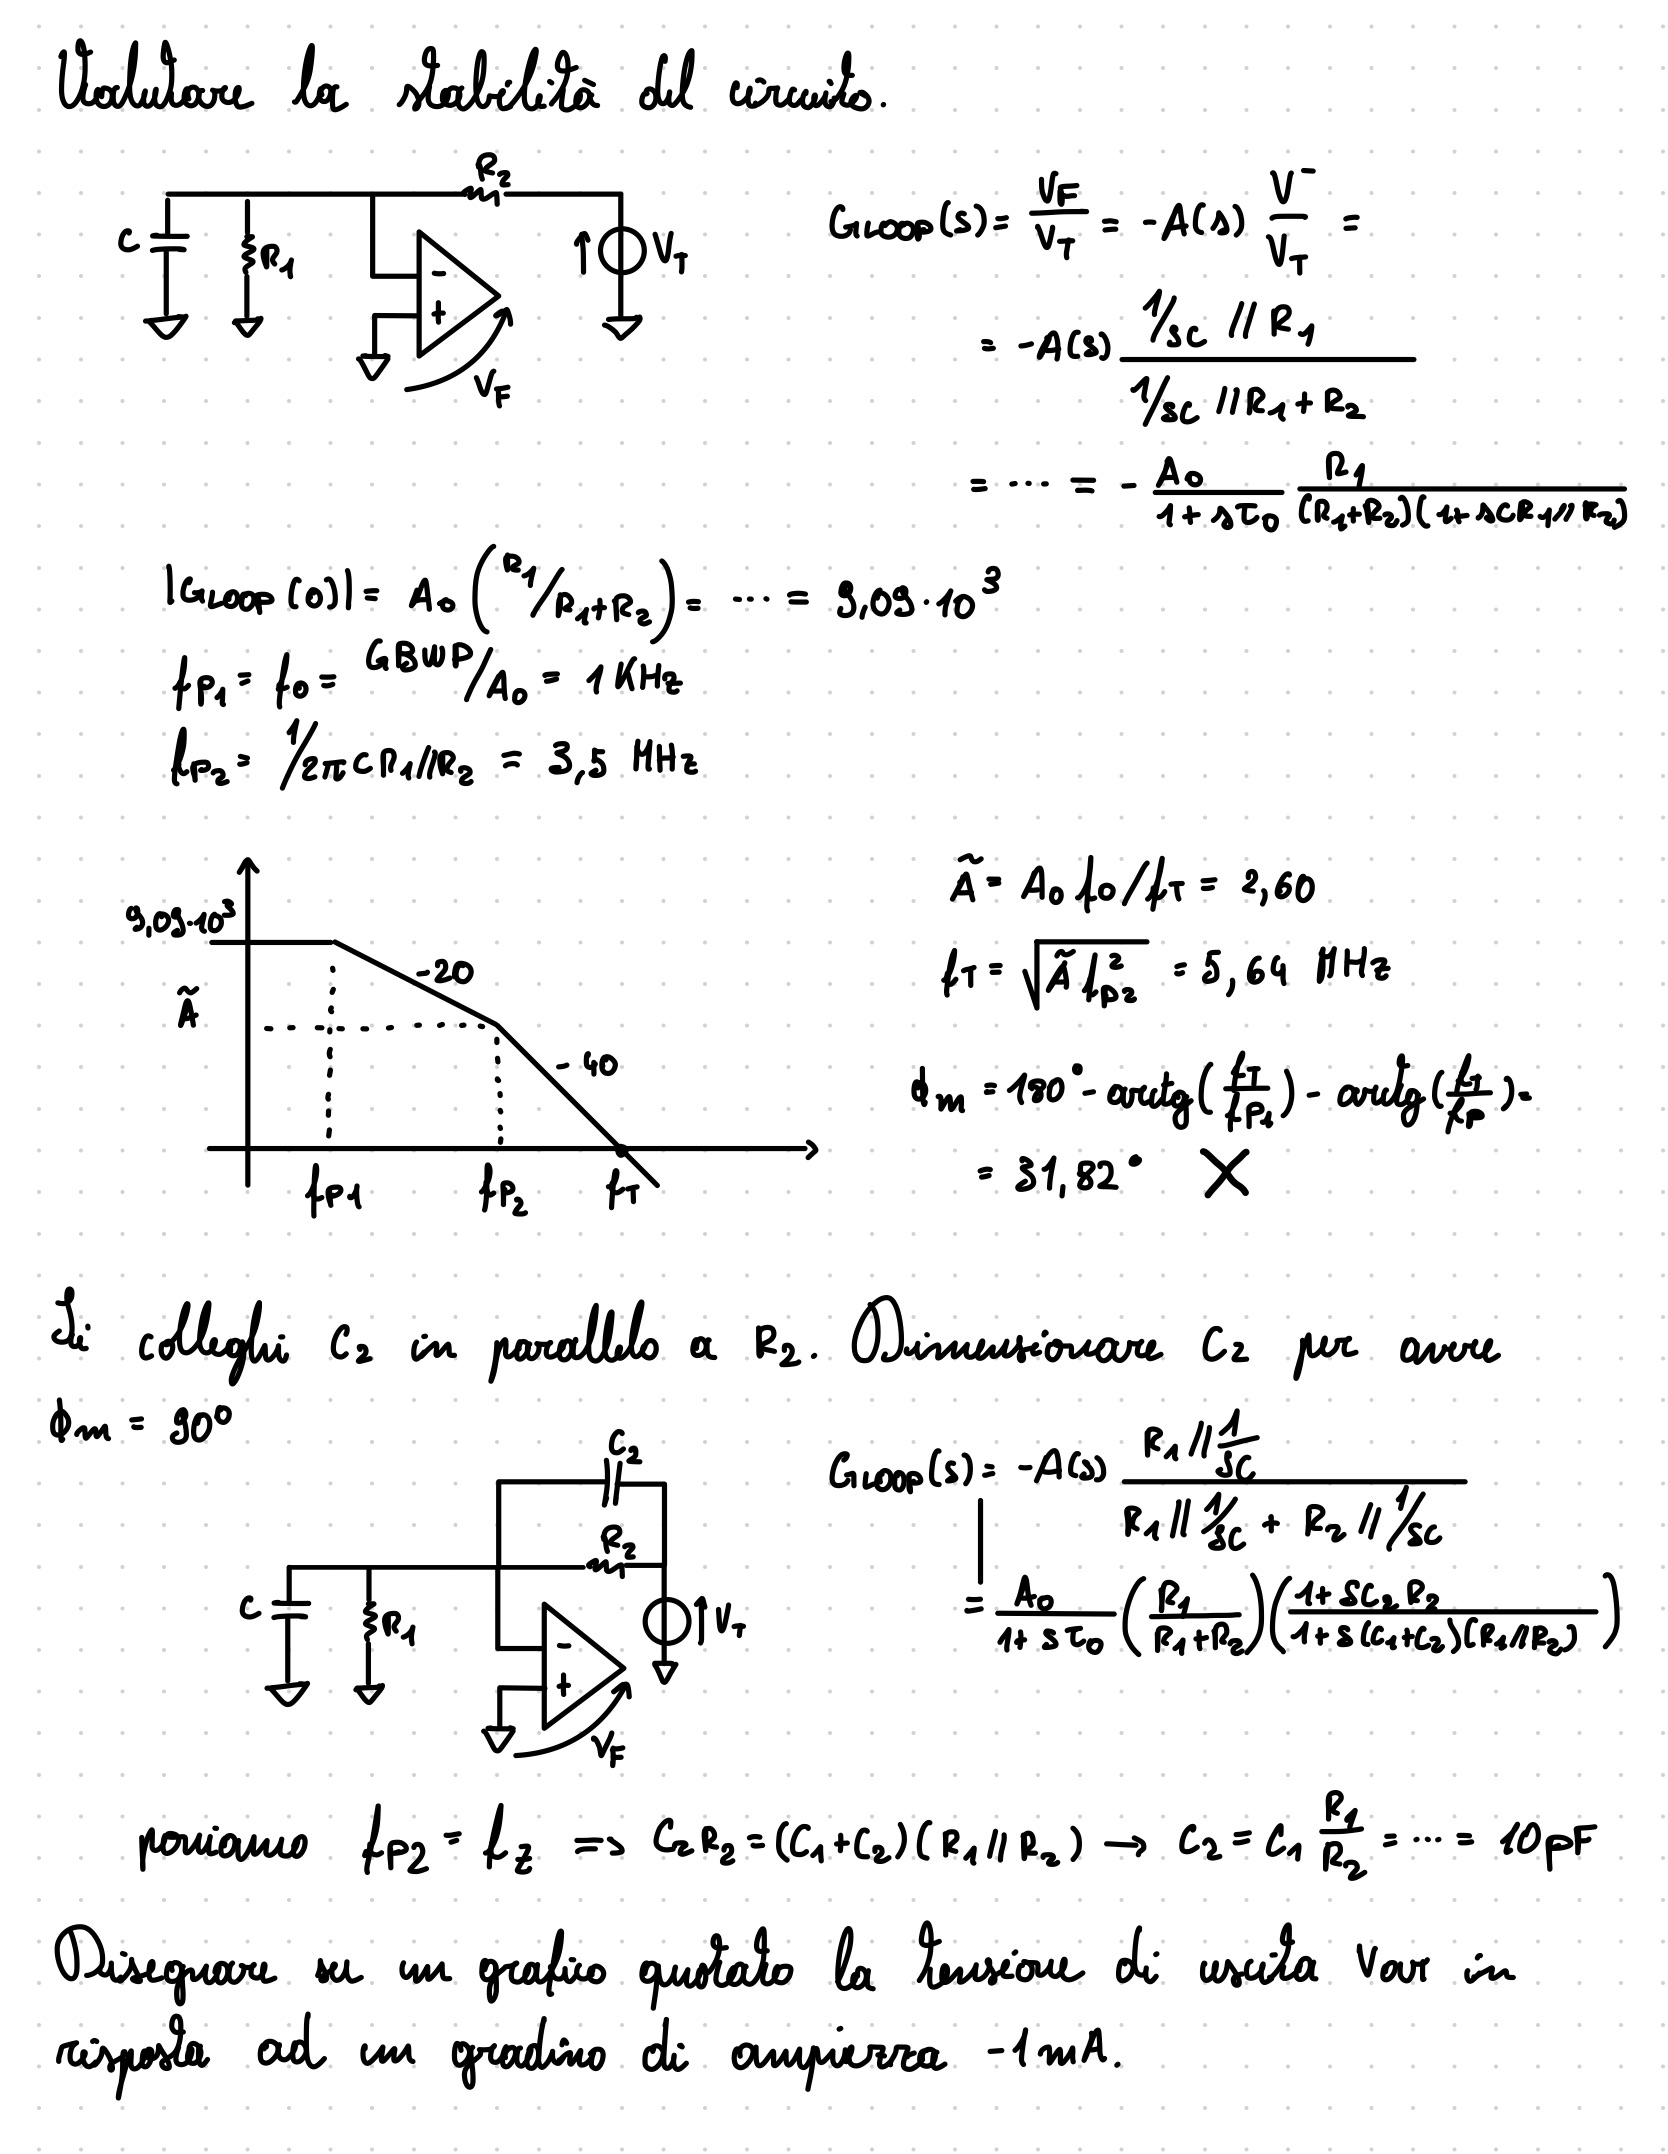 Valutare la stabilità del circuito.
R2
C
R1
-
+
VT
VF
GLOOP(s) = VF/VT = -A(s) V⁻/VT =
= -A(s) (1/sC // R1) / (1/sC // R1 + R2)
= ··· = - A0/(1 + sτ0) R1/((R1+R2)(1 + sCR1//R2))
|GLOOP(0)| = A0 (R1/R1+R2) = ··· = 9,09·10³
fP1 = f0 = GBWP/A0 = 1 KHz
fP2 = 1/2πCR1//R2 = 3,5 MHz
9,09·10³
Ã
-20
-40
fP1
fP2
fT
Ã = A0 f0/fT = 2,60
fT = √(Ã fP2²) = 5,64 MHz
ϕm = 180° - arctg(fT/fP1) - arctg(fT/fP) =
= 31,82° X
Si colleghi C2 in parallelo a R2. Dimensionare C2 per avere
ϕm = 90°
C2
R2
C
R1
-
+
VT
VF
GLOOP(s) = -A(s) (R1 // 1/sC) / (R1 // 1/sC + R2 // 1/sC)
= A0/(1 + sτ0) (R1/(R1+R2)) ((1 + sC2R2)/(1 + s(C1+C2)(R1//R2)))
poniamo fP2 = fz => C2R2 = (C1+C2)(R1//R2) → C2 = C1 R1/R2 = ··· = 10pF
Disegnare su un grafico quotato la tensione di uscita Vout in
risposta ad un gradino di ampiezza -1mA.